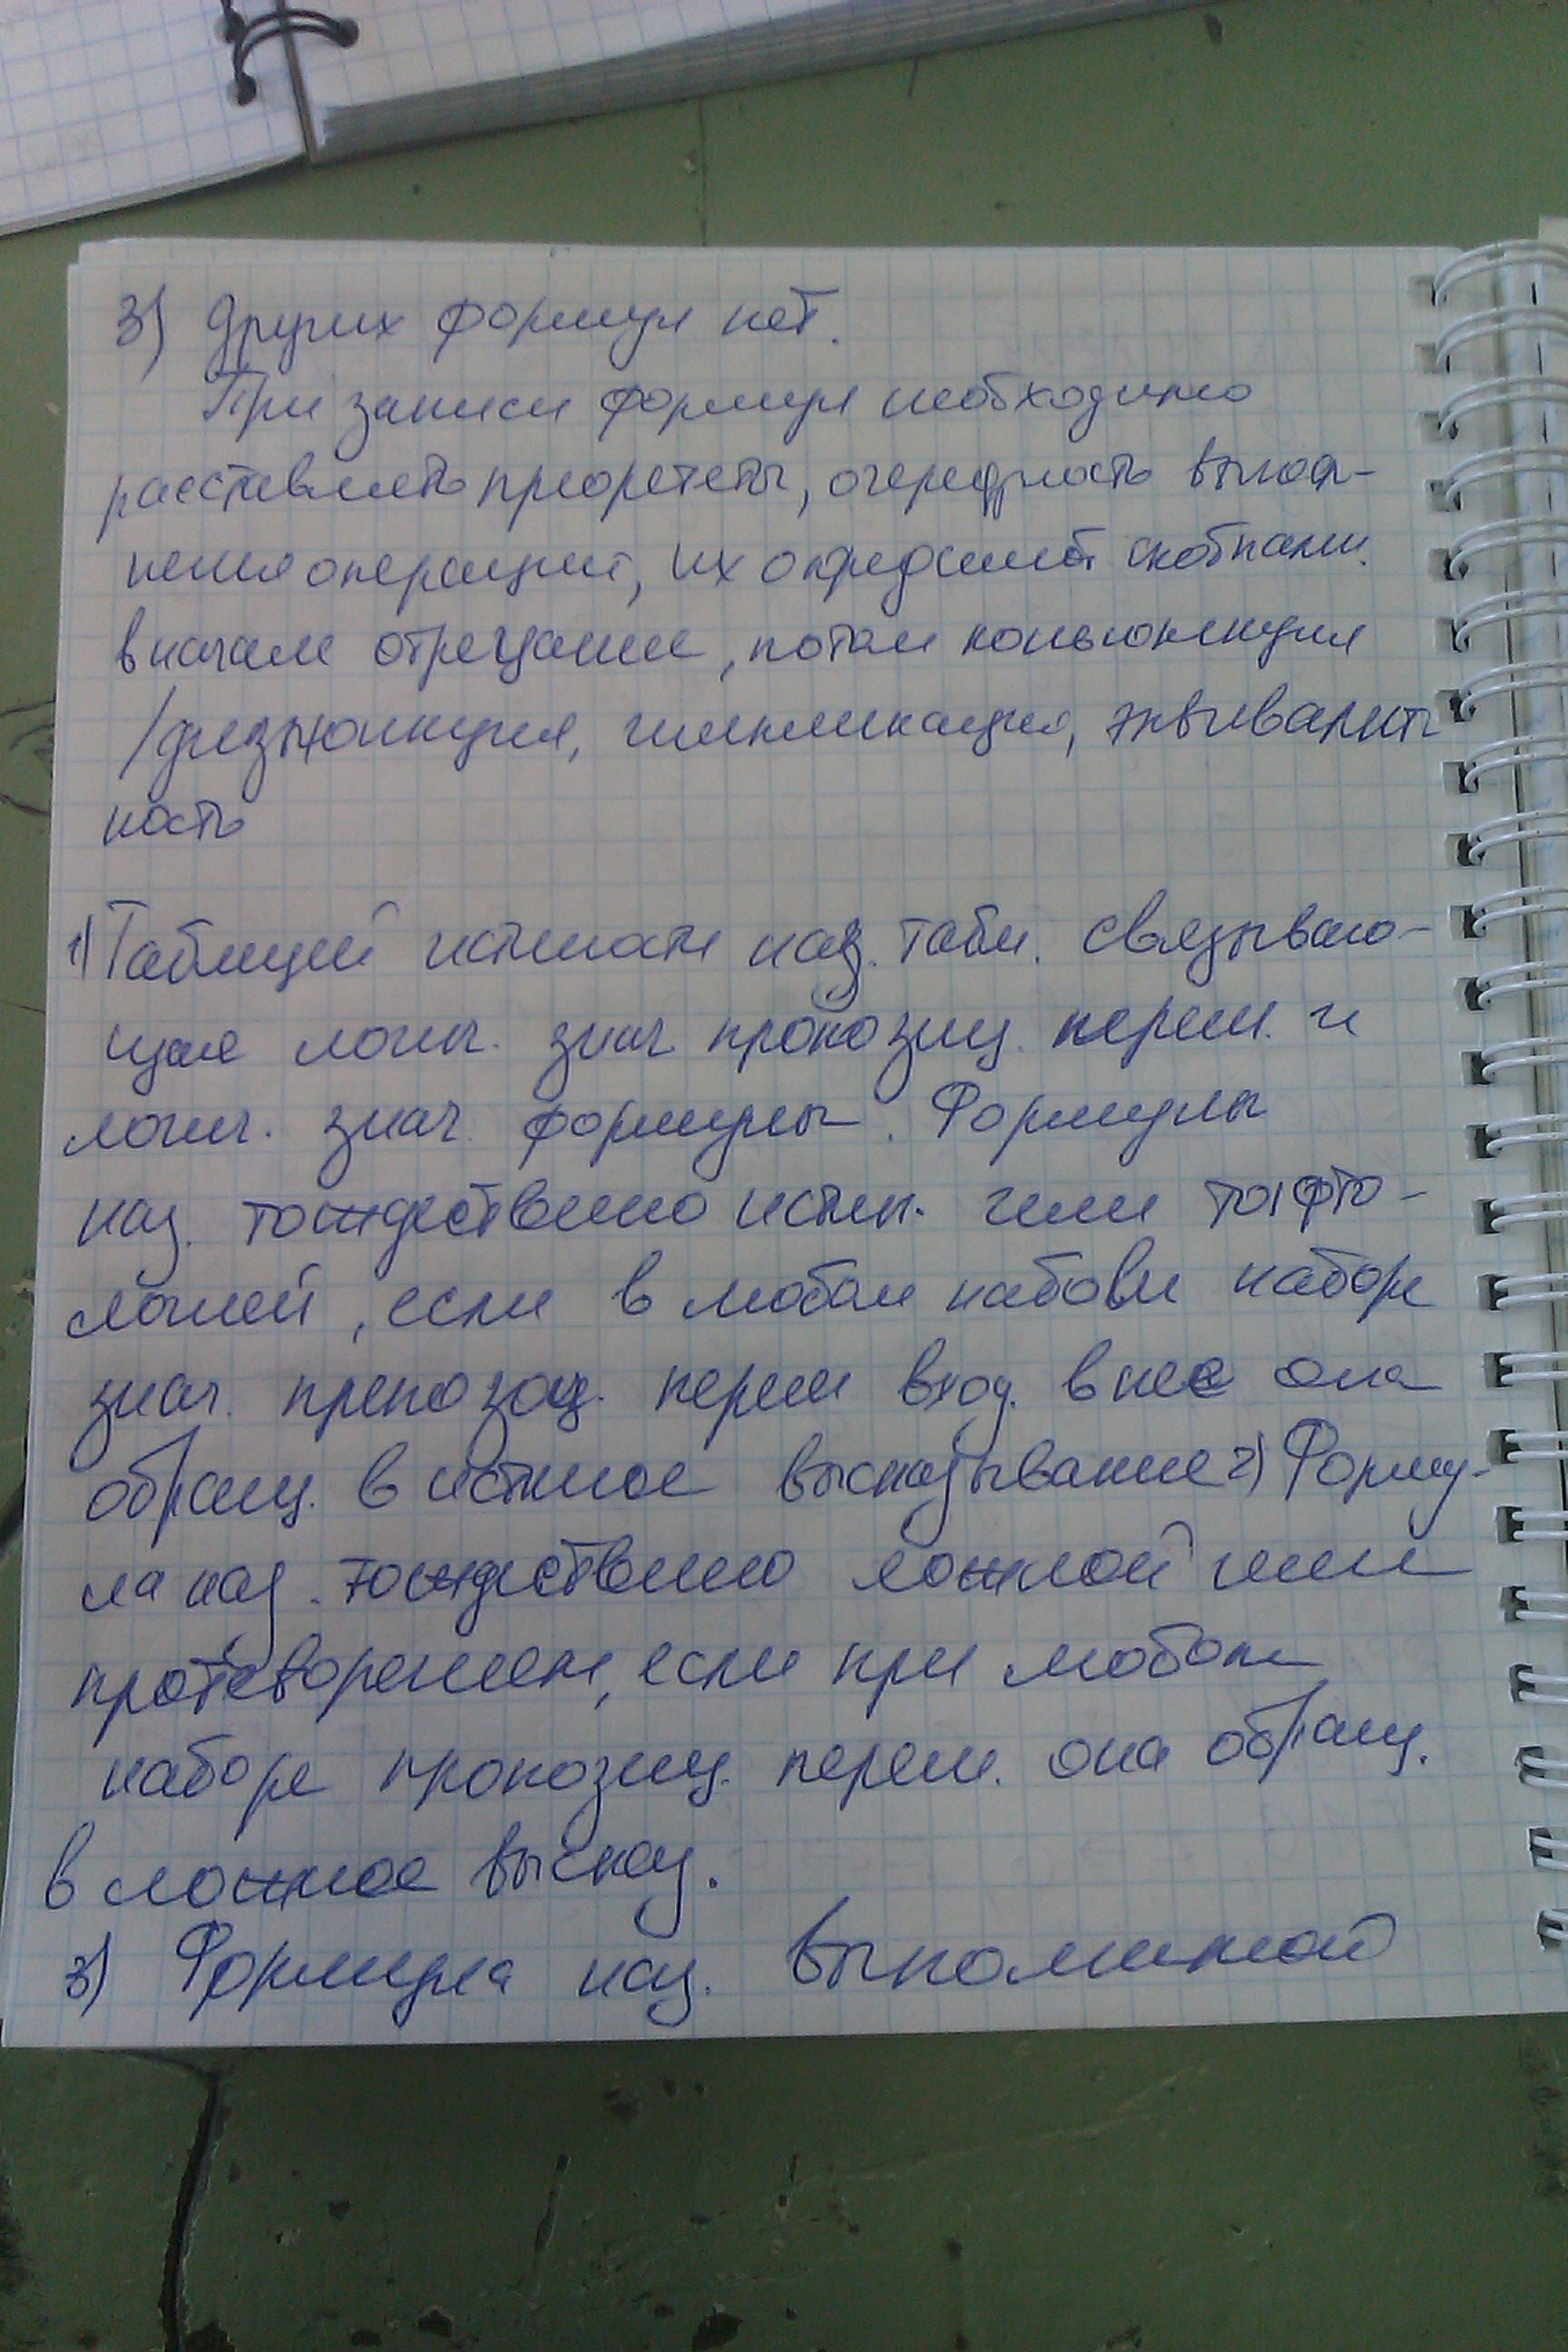 3) Других формул нет.
При записи формул необходимо
расставлять преорететы, очередность выпол-
нения операций, их определяют скобками.
вначале отрецание, потом коньюнкция
/дизъюнкция, импликация, эквивалент
ность
1) Таблицей истиности наз. табл. связываю-
щая логич. знач пропозиц. перем. и
логич. знач. формулы. Формулы
наз. тождественно истин. или тафто-
логией, если в любом набове наборе
знач. препозац. перем вход. в нее она
обращ. в истиное высказывание 2) Форму-
ла наз. тождественно ложной или
протеворечием, если при любом
наборе пропозиц. перем. она обращ.
в ложное высказ.
3) Формула наз. выполнимой